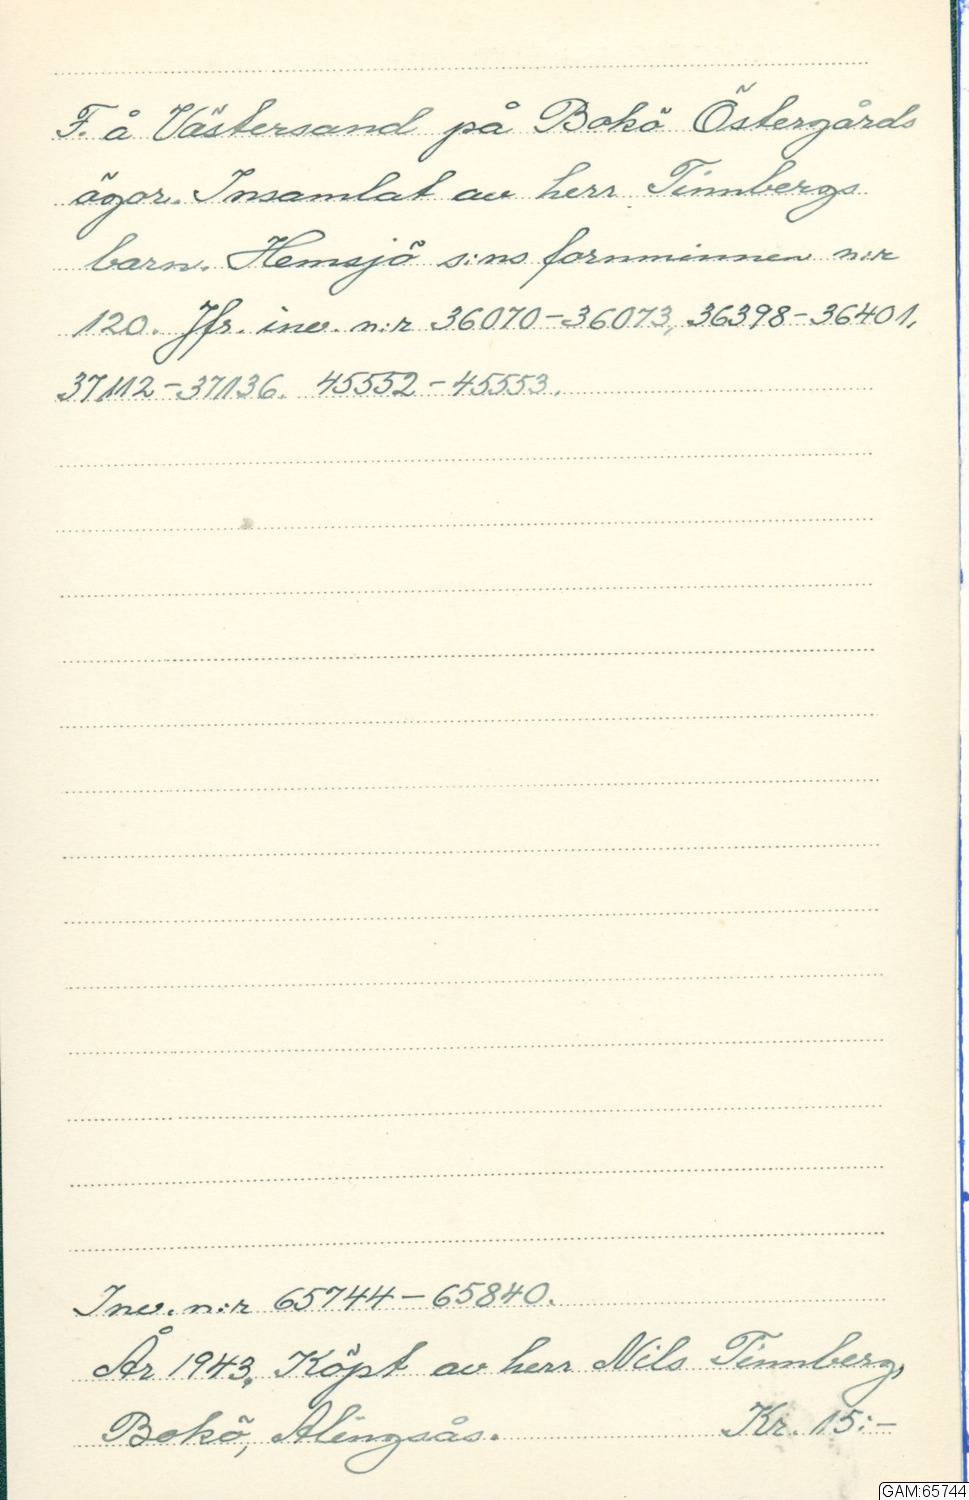 F. å Västersand på Bokö Östergårds
ägor. Insamlat av herr Tinnbergs
barn. Hemsjö s:ns fornminnen n:r
120. Jfr. inv. n:r 36070-36073, 36398-36401,
37112-37136. 45552-45553.
Inv. n:r 65744-65840.
År 1943. Köpt av herr Nils Tinnberg,
Bokö, Alingsås. Kr. 15:-
GAM:65744